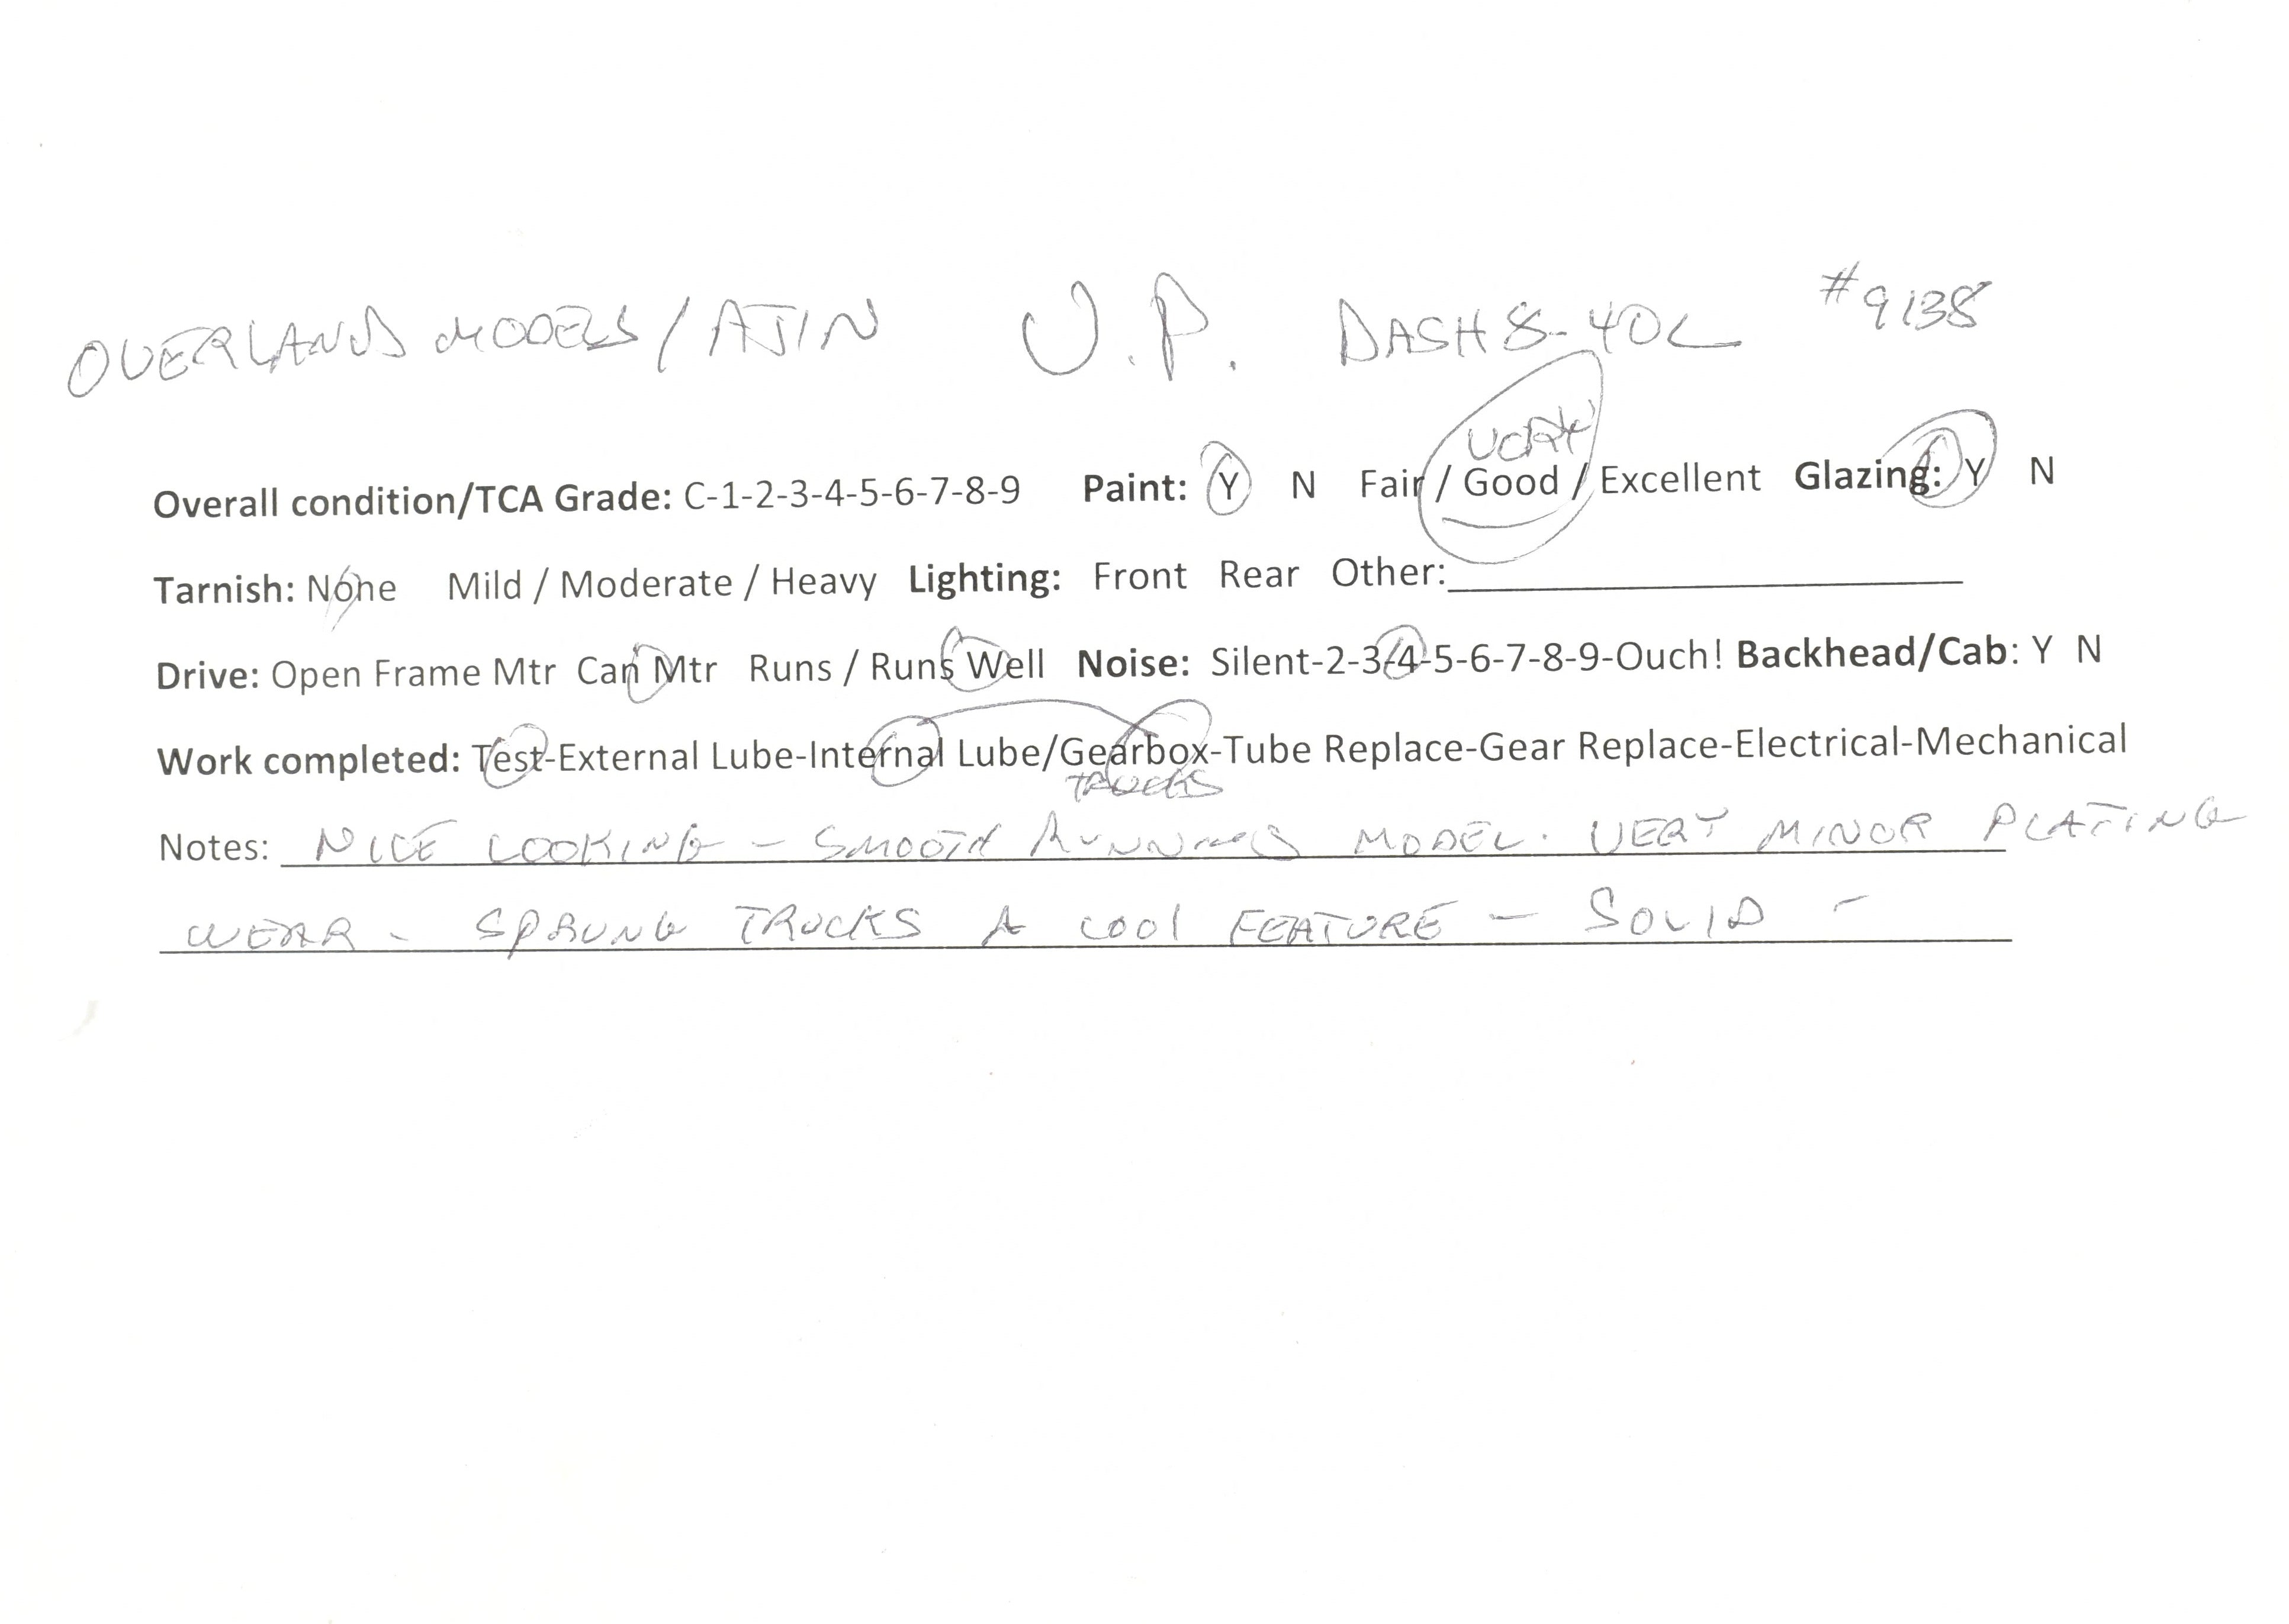 OVERLAND MODELS / AJIN U.P. DASH 8-40C #9138
VERY
Overall condition/TCA Grade: C-1-2-3-4-5-6-7-8-9 Paint: Y N Fair / Good / Excellent Glazing: Y N
Tarnish: None Mild / Moderate / Heavy Lighting: Front Rear Other:
Drive: Open Frame Mtr Can Mtr Runs / Runs Well Noise: Silent-2-3-4-5-6-7-8-9-Ouch! Backhead/Cab: Y N
Work completed: Test-External Lube-Internal Lube/Gearbox-Tube Replace-Gear Replace-Electrical-Mechanical
TRUCKS
Notes: NICE LOOKING - SMOOTH RUNNING MODEL. VERY MINOR PLATING
WEAR - SPRUNG TRUCKS A COOL FEATURE - SOLID -